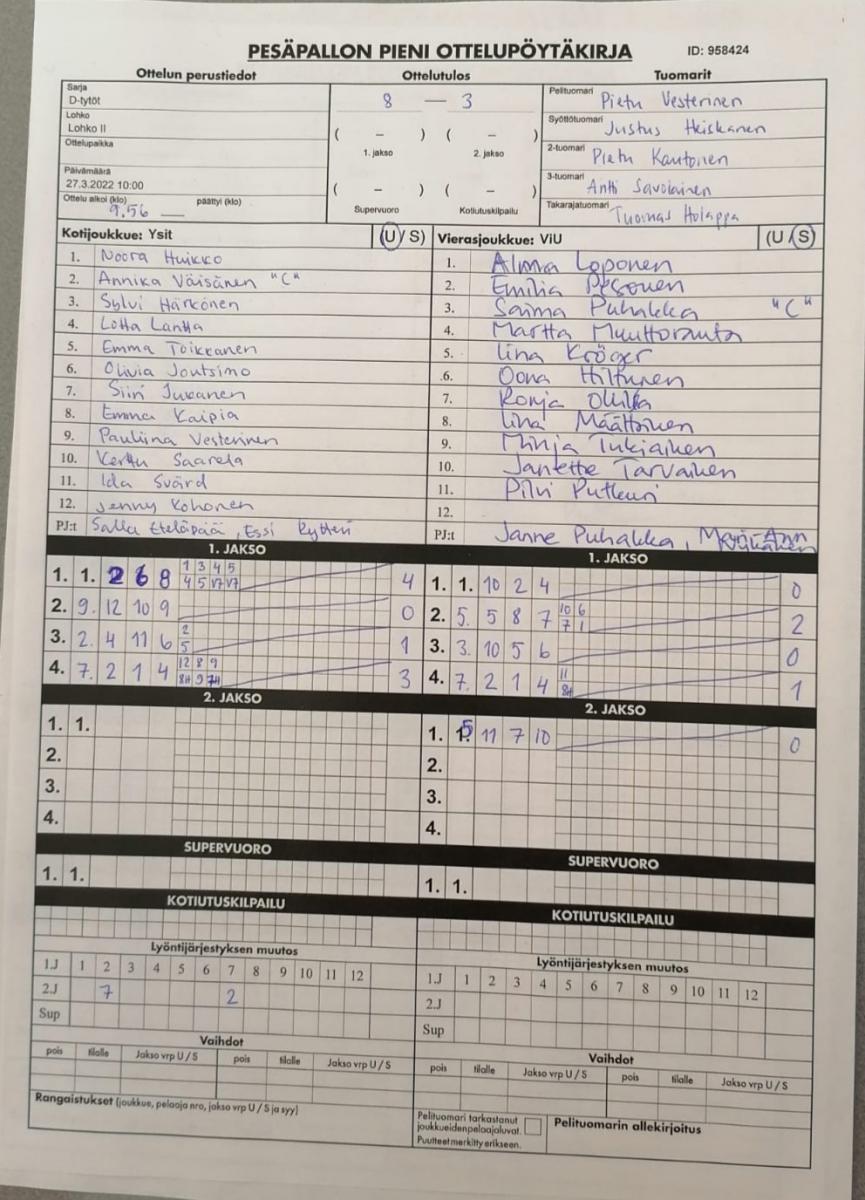 PESÄPALLON PIENI OTTELUPÖYTÄKIRJA ID: 958424
Ottelun perustiedot Ottelutulos Tuomarit
Sarja
D-tytöt
Lohko
Lohko II
Ottelupaikka
Päivämäärä
27.3.2022 10:00
Ottelu alkoi (klo) päättyi (klo)
9.56
8 — 3
( – ) ( – )
1. jakso 2. jakso
( – ) ( – )
Supervuoro Kotiutuskilpailu
Pelituomari Pietu Vesterinen
Syöttötuomari Justus Heiskanen
2-tuomari Pietu Kautonen
3-tuomari Antti Savolainen
Takarajatuomari Tuomas Holappa
Kotijoukkue: Ysit (U/ S)
1. Noora Huikko
2. Annika Väisänen "C"
3. Sylvi Härkönen
4. Lotta Lantta
5. Emma Toikkanen
6. Olivia Joutsimo
7. Siiri Jukanen
8. Emma Kaipia
9. Pauliina Vesterinen
10. Kerttu Saarela
11. Ida Svärd
12. Jenny Kohonen
PJ:t Salla Eteläpää, Essi
Vierasjoukkue: ViU (U/ S)
1. Alma Loponen
2. Emilia Pesonen
3. Saima Puhakka "C"
4. Martta Muuttoranta
5. Iina Kröger
6. Oona Hiltunen
7. Ronja Ollila
8. Iina Määttänen
9. Minja Tukiainen
10. Janette Tarvainen
11. Pilvi Putkuri
12.
PJ:t Janne Puhakka,
1. JAKSO
1. 1. 2 6 8 1 3 4 5 4
4 5 V7 V7
2. 9. 12 10 9 0
3. 2. 4 11 6 2 1
5
4. 7. 2 1 4 12 8 9 3
8H 9 7H
1. JAKSO
1. 1. 10 2 4 0
2. 5. 5 8 7 10 6 2
7 1
3. 3. 10 5 6 0
4. 7. 2 1 4 11 1
8H
2. JAKSO
1. 1.
2.
3.
4.
2. JAKSO
1. 5. 11 7 10 0
2.
3.
4.
SUPERVUORO
1. 1.
SUPERVUORO
1. 1.
KOTIUTUSKILPAILU
KOTIUTUSKILPAILU
Lyöntijärjestyksen muutos
1.J 1 2 3 4 5 6 7 8 9 10 11 12
2.J 7 2
Sup
Lyöntijärjestyksen muutos
1.J 1 2 3 4 5 6 7 8 9 10 11 12
2.J
Sup
Vaihdot
pois tilalle Jakso vrp U / S pois tilalle Jakso vrp U / S
Vaihdot
pois tilalle Jakso vrp U / S pois tilalle Jakso vrp U / S
Rangaistukset (joukkue, pelaaja nro, jakso vrp U / S ja syy)
Pelituomari tarkastanut
joukkueidenpelaajaluvat.
Puutteet merkitty erikseen.
Pelituomarin allekirjoitus